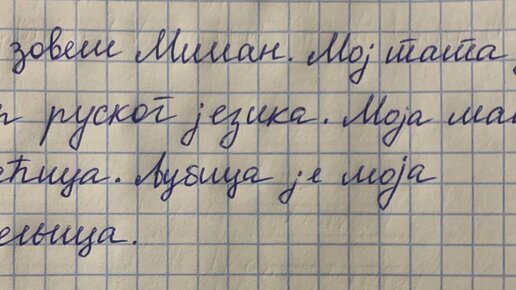 зовем Милан. Мој тата
руског језика. Моја ма
ећица. Љубица је моја
ељица.